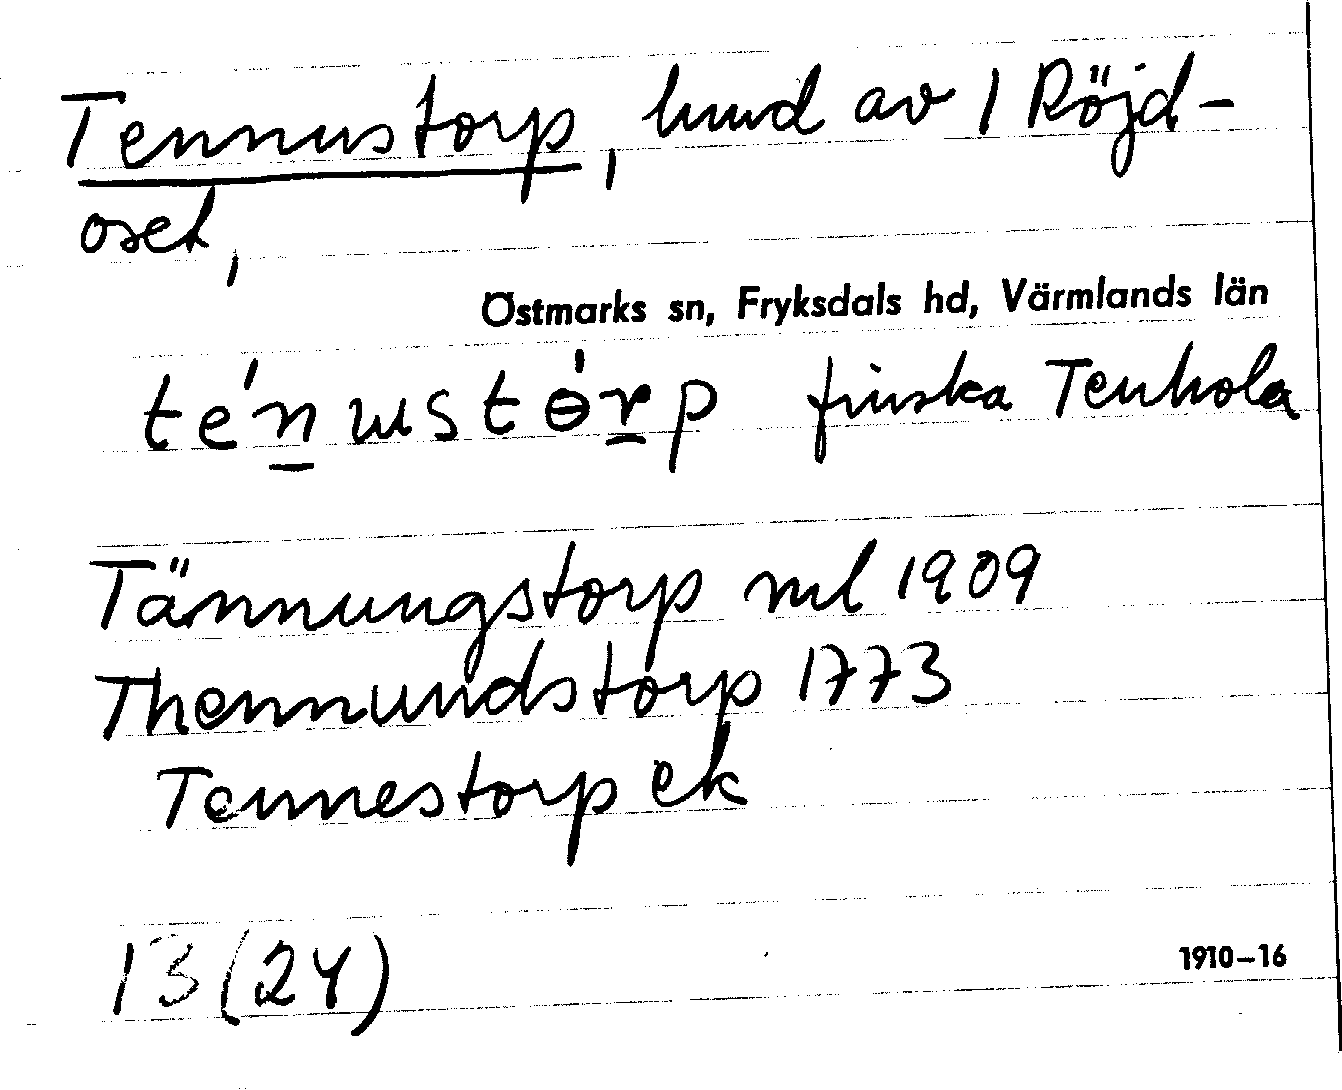 Tennustorp, hmd av 1 Röjd-
oset,
Östmarks sn, Fryksdals hd, Värmlands län
te´n̲ɯstɵ́r̲p finska Tenhola
Tännungstorp ml 1909
Thennundstorp 1773
Tennestorp ek
13 (24)
1910–16